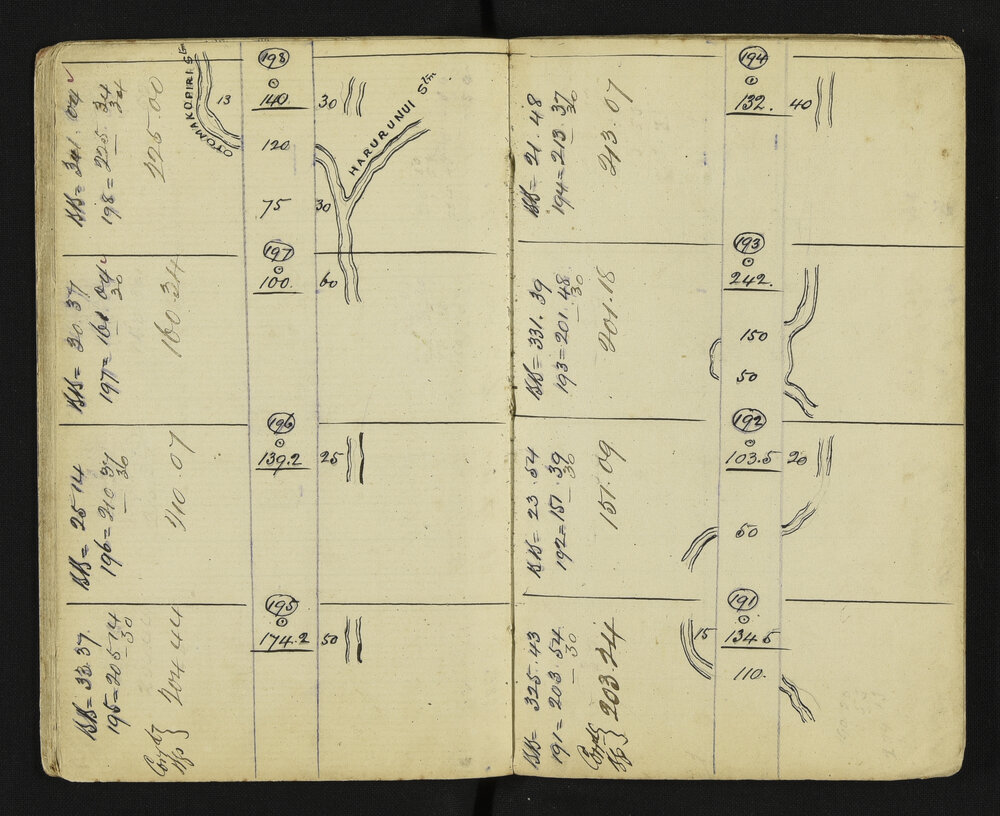 198
140 30
OTOMAKOPIRI Stm
13
120
HARURUNUI Stm
75 30
BB = 341. 04
198 = 225. 34
34
225.00
197
100. 60
BB = 30 37
197 = 160 04
30
160.34
196
139.2 25
BB = 25 14
196 = 210 37
30
210.07
195
174.2 50
BB = 33.37
195 = 205 14
30
204.44
194
132. 40
BB = 21. 48
194 = 213. 37
30
213.07
193
242.
150
50
BB = 331. 39
193 = 201. 48
30
201.18
192
103.5 20
50
BB = 23. 54
192 = 151. 39
30
151.09
191
15 134.5
110.
BB = 325. 43
191 = 203. 54
30
203.24